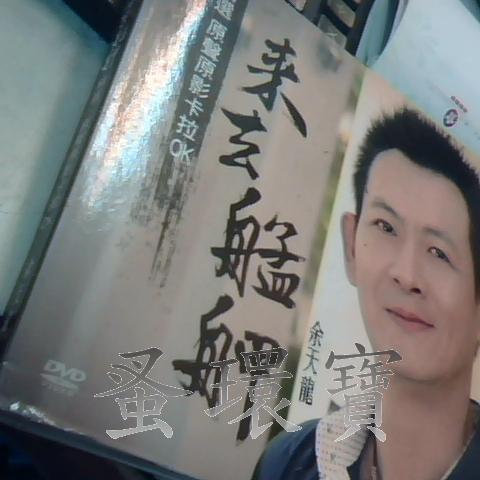 選 原聲原影卡拉OK
来去艋舺
余天龍
DVD
蚤環寶